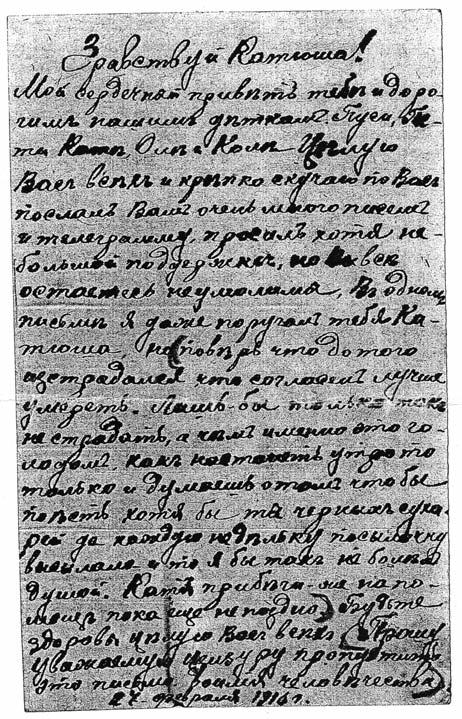 Здравствуй Катюша!
Мой сердечный приветъ тебѣ и доро-
гимъ нашимъ дѣткамъ Пуси,
Кати, Оли и Коли Цѣлую
Васъ всѣхъ и крѣпко скучаю по Васъ
послалъ Вамъ очень много писемъ
и телеграмму, просилъ хотя не-
большой поддержки, но Вы все
остаетесь неумолима, Въ одномъ
письмѣ я даже поругалъ тебя Ка-
тюша, но повѣрь что до того
изстрадался что согласенъ лучше
умереть. Лишь-бы только такъ
не страдать, а чѣмъ именно это го-
лодомъ, какъ настанетъ утро то
только и думаешь о томъ что бы
поѣсть хотя бы тѣ черныхъ суха-
рей да каждую недѣльку посылочку
высылала и то я бы такъ не болѣлъ
душой. Катя прибѣги-же на по-
мощь пока еще не поздно Будьте
здоровы цѣлую Васъ всѣхъ Прошу
уважаемую цензуру пропустить
это письмо во имя человѣчества
27 февраля 1916 г.